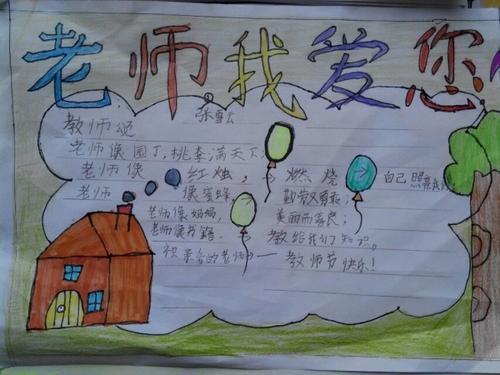 老师我爱您
教师颂
老师像园丁,桃李满天下
老师像红烛,燃烧自己照亮我们
老师像蜜蜂,勤劳勇敢;
老师像妈妈,美丽而善良;
老师像书籍,教给我们知识。
祝亲爱的老师——教师节快乐!